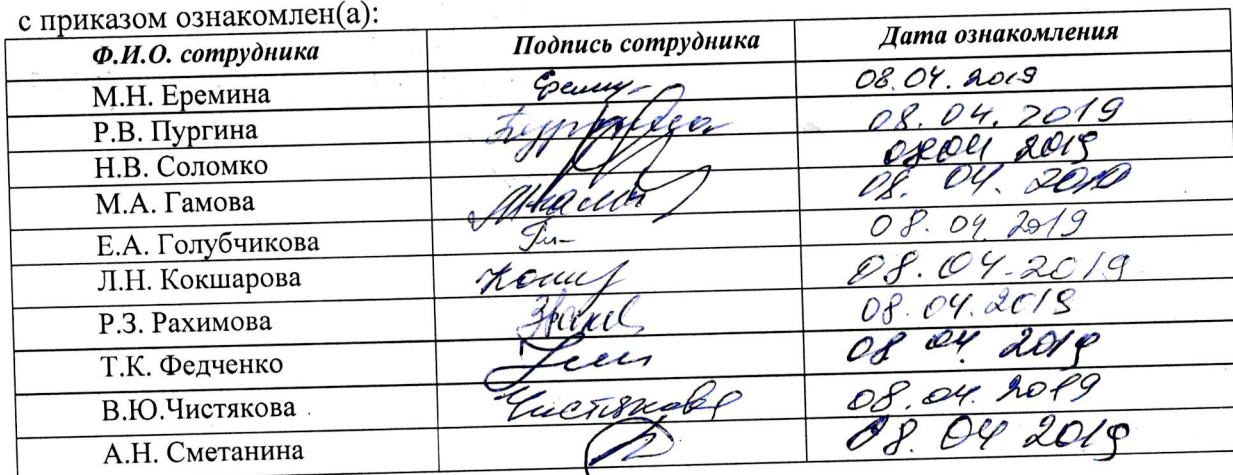 с приказом ознакомлен(а):
Ф.И.О. сотрудника Подпись сотрудника Дата ознакомления
М.Н. Еремина 08.04.2019
Р.В. Пургина 08.04.2019
Н.В. Соломко 08 04 2019
М.А. Гамова 08. 04. 2019
Е.А. Голубчикова 08.04.2019
Л.Н. Кокшарова 08.04.2019
Р.З. Рахимова 08.04.2019
Т.К. Федченко 08 04. 2019
В.Ю.Чистякова Чистякова 08.04.2019
А.Н. Сметанина 08. 04 2019